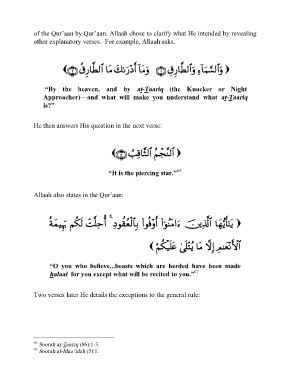 of the Qur'aan by Qur'aan. Allaah chose to clarify what He intended by revealing
other explanatory verses. For example, Allaah asks,
﴿ وَٱلسَّمَآءِ وَٱلطَّارِقِ ۝ وَمَآ أَدْرَىٰكَ مَا ٱلطَّارِقُ ۝ ﴾
"By the heaven, and by at-Taariq (the Knocker or Night
Approacher)—and what will make you understand what at-Taariq
is?"
He then answers His question in the next verse:
﴿ ٱلنَّجْمُ ٱلثَّاقِبُ ۝ ﴾
"It is the piercing star."
Allaah also states in the Qur'aan:
﴿ يَـٰٓأَيُّهَا ٱلَّذِينَ ءَامَنُوٓا۟ أَوْفُوا۟ بِٱلْعُقُودِ ۚ أُحِلَّتْ لَكُم بَهِيمَةُ
ٱلْأَنْعَـٰمِ إِلَّا مَا يُتْلَىٰ عَلَيْكُمْ ﴾
"O you who believe...beasts which are herded have been made
halaal for you except what will be recited to you."
Two verses later He details the exceptions to the general rule:
Soorah at-Taariq (86):1-3.
Soorah al-Maa'idah (5):1.